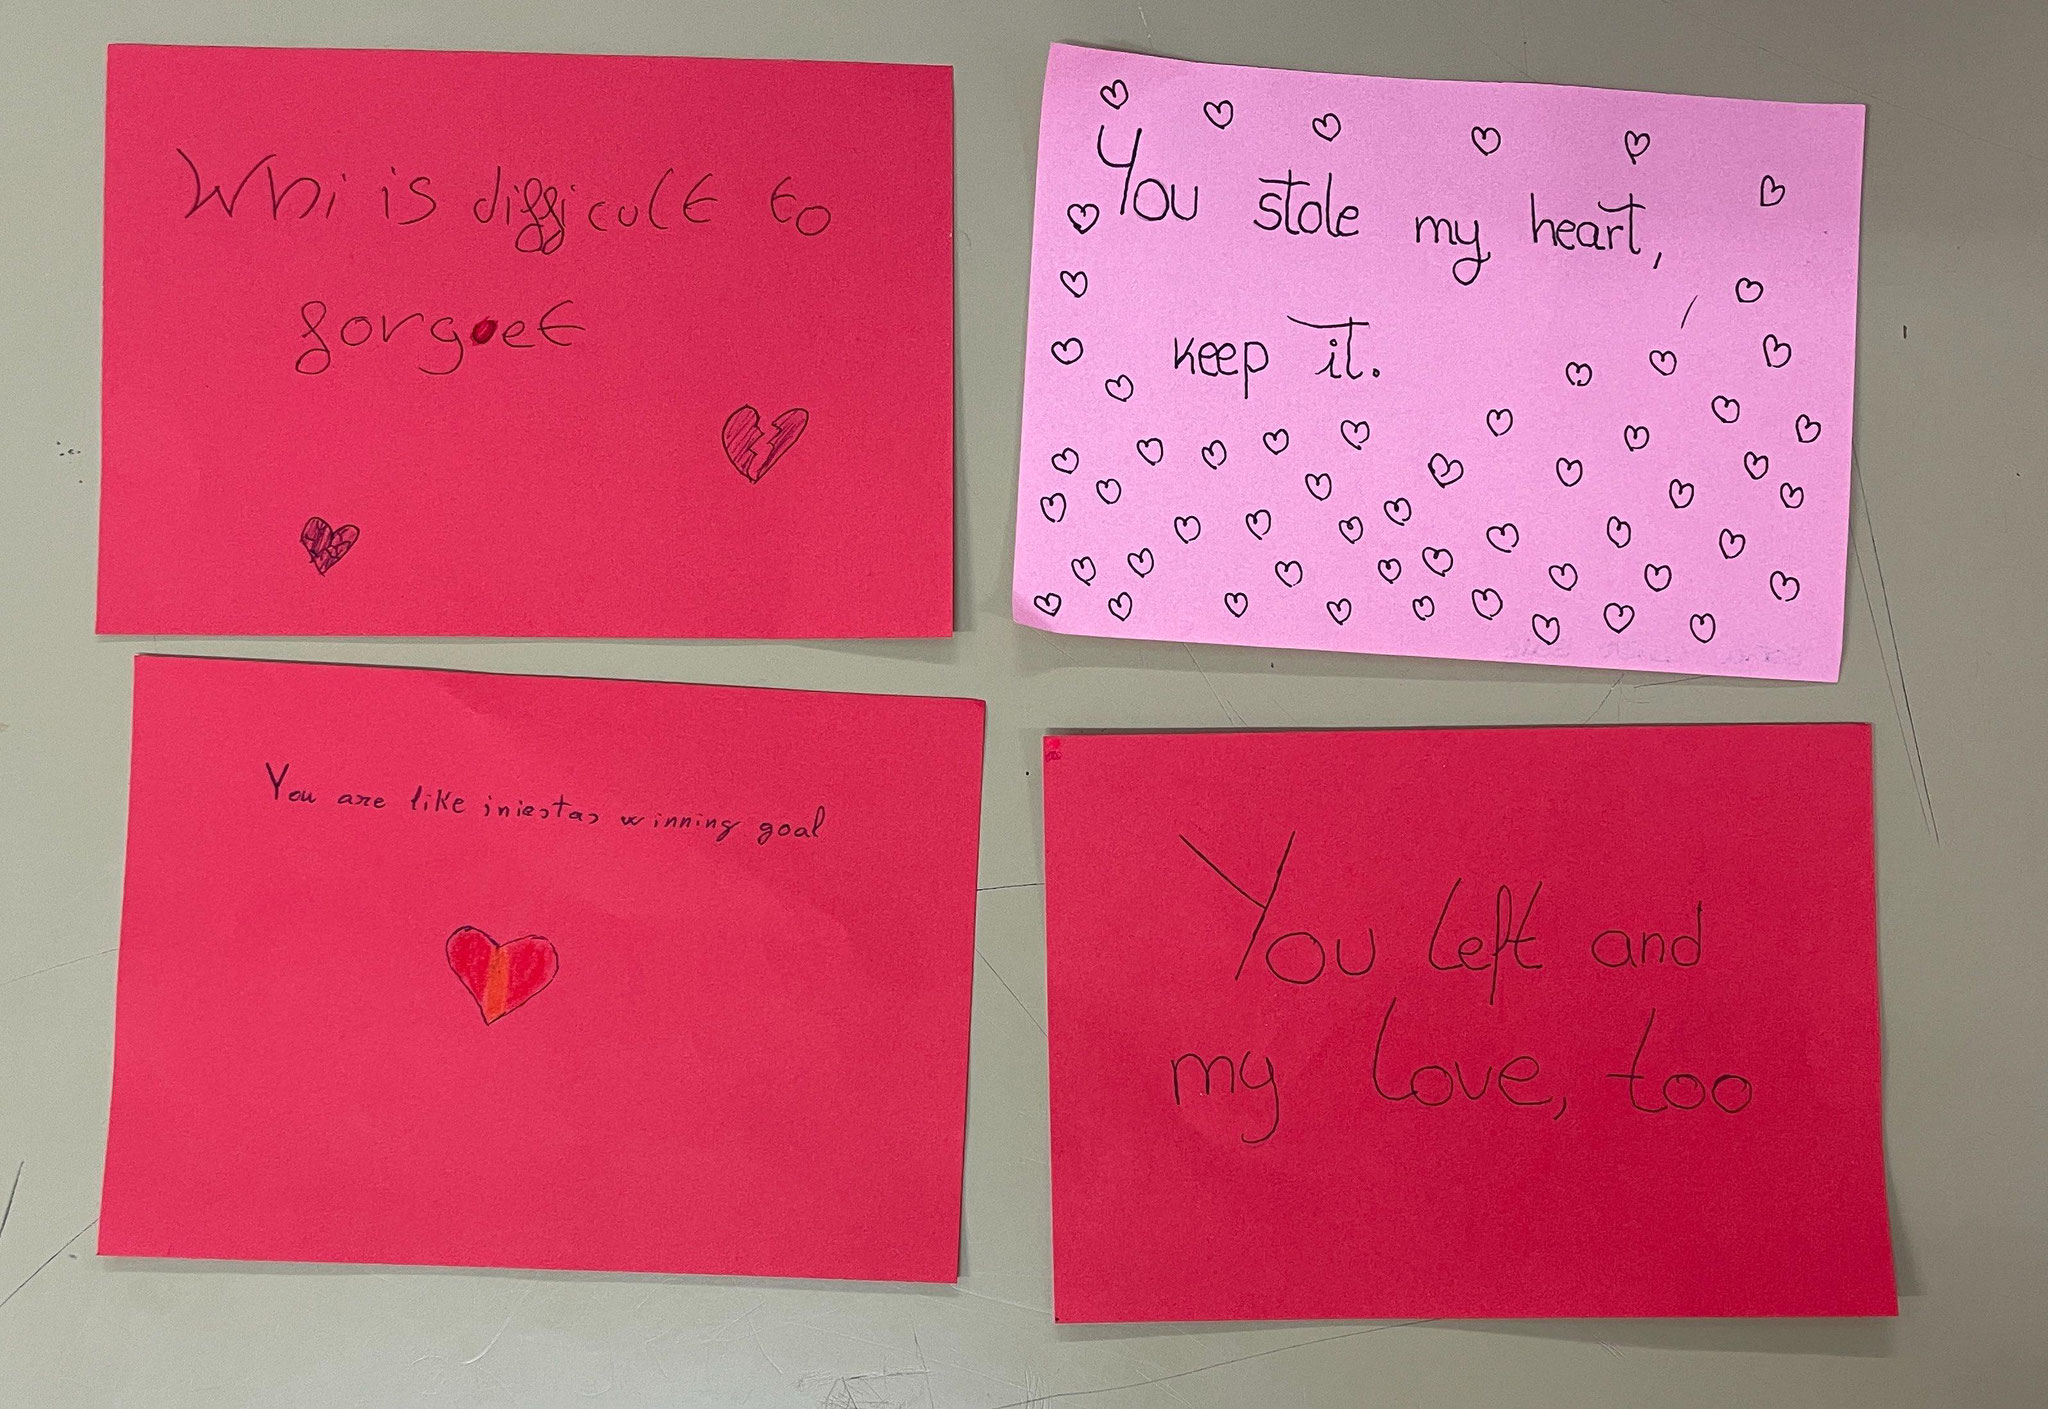 Whi is difficult to
forget
You stole my heart,
keep it.
You are like iniestas winning goal
You left and
my love, too